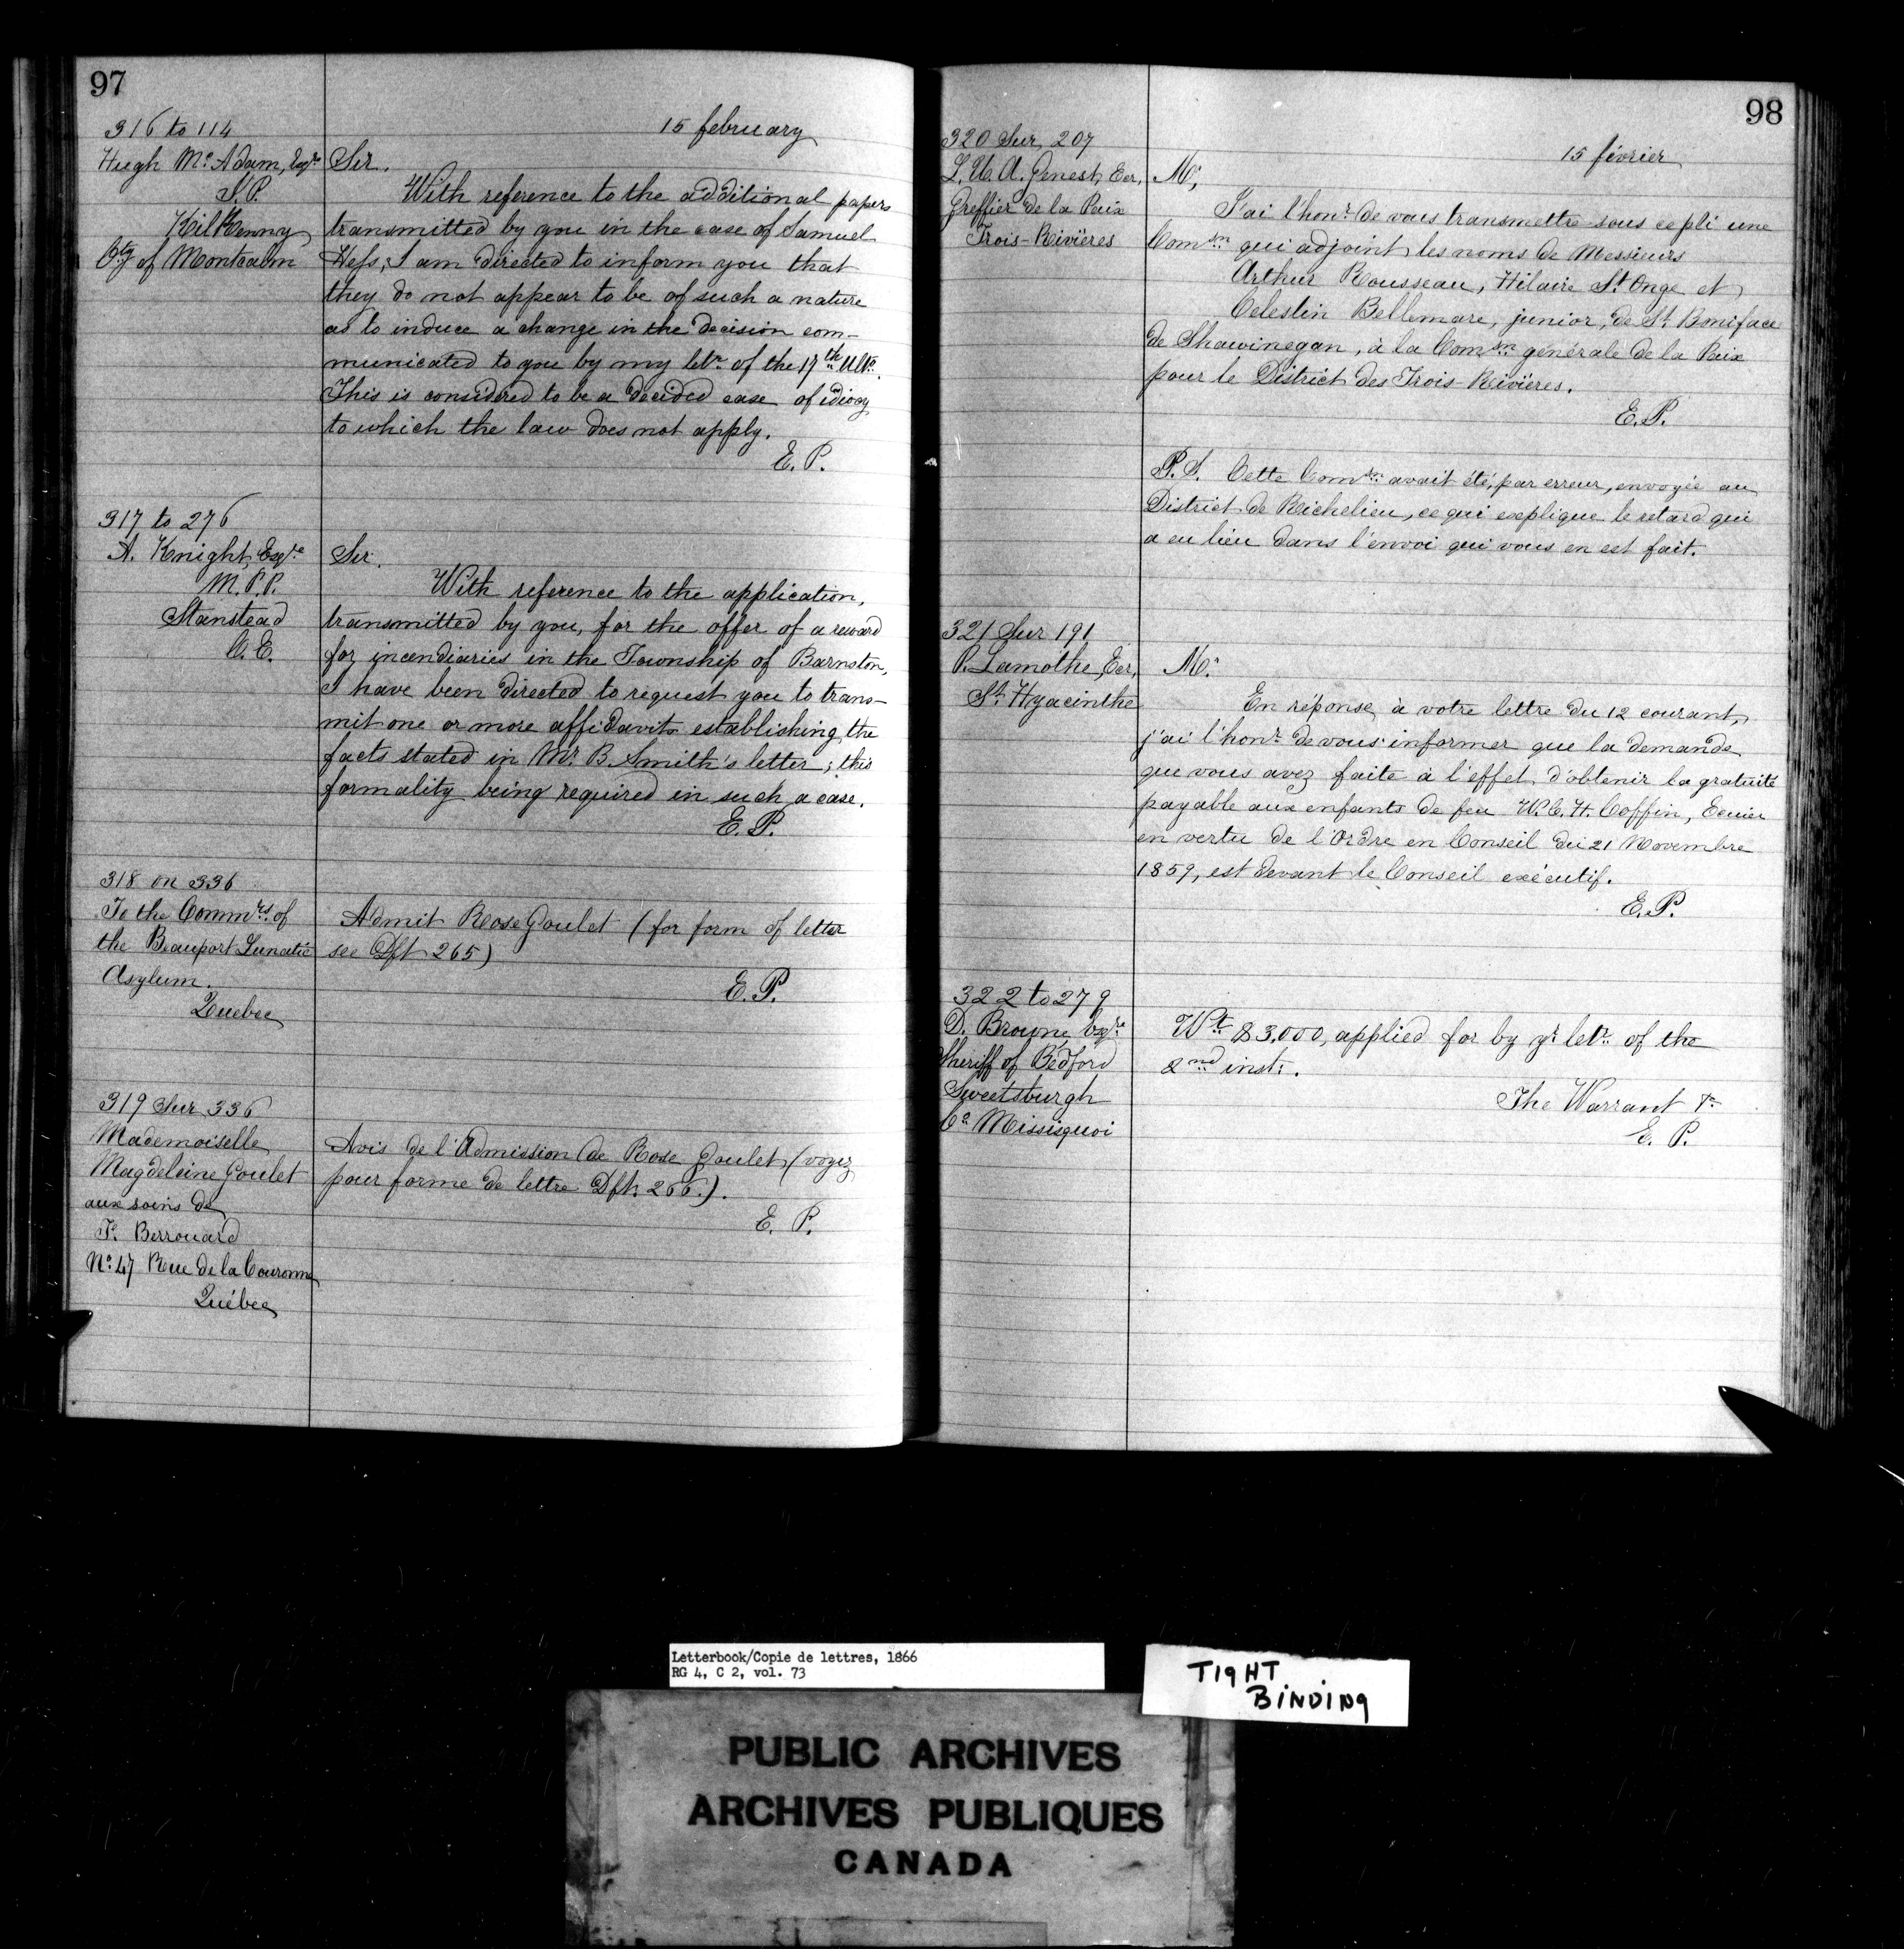 97
15 february
316 to 114
Hugh Mc Adam, Esqre
J.P.
KilKenny
Cty of Montcalm
Sir,
With reference to the additional papers
transmitted by you in the case of Samuel
Hess, I am directed to inform you that
they do not appear to be of such a nature
as to induce a change in the decision com-
municated to you by my letr of the 17th Ulto.
This is considered to be a decided case of idiocy
to which the law does not apply.
E. P.
317 to 276
A. Knight, Esqre
M.P.P.
Stanstead
C.E.
Sir.
With reference to the application,
transmitted by you, for the offer of a reward
for incendiaries in the Township of Barnston,
I have been directed to request you to trans-
mit one or more affidavits establishing the
facts stated in Mr B. Smith's letter; this
formality being required in such a case.
E. P.
318 on 336
To the Commrs of
the Beauport Lunatic
Asylum.
Quebec
Admit Rose Goulet (for form of letter
see Dft 265)
E. P.
319 Sur 336
Mademoiselle
Magdeleine Goulet
aux soins de
F. Berrouard
No 47 Rue de la Couronne
Québec
Avis de l'Admission de Rose Goulet (voyez
pour forme de lettre Dft 266.).
E. P.
98
15 février
320 Sur 207
L. U. A. Genest, Ecr,
Greffier de la Paix
Trois-Rivières
Mr,
J'ai l'honr de vous transmettre sous ce pli une
Comsn qui adjoint les noms de Messieurs
Arthur Rousseau, Hilaire St Onge et
Celestin Bellemare, junior, de St Boniface
de Shawinegan, à la Comsn générale de la Paix
pour le District des Trois-Rivières.
E. P.
P.S. Cette Comsn avait été, par erreur, envoyée au
District de Richelieu, ce qui explique le retard qui
a eu lieu dans l'envoi qui vous en est fait.
321 Sur 191
P. Lamothe, Ecr,
St Hyacinthe
Mr
En réponse à votre lettre du 12 courant,
j'ai l'honr de vous informer que la demande
que vous avez faite à l'effet d'obtenir la gratuité
payable aux enfants de feu W. C. H. Coffin, Ecuier
en vertu de l'Ordre en Conseil du 21 Novembre
1859, est devant le Conseil exécutif.
E. P.
322 to 279
D. Browne, Esqre
Sheriff of Bedford
Sweetsburgh
Co Missisquoi
Wt $3.000, applied for by yr letr of the
2nd inst.
The Warrant
E. P.
Letterbook/Copie de lettres, 1866
RG 4, C 2, vol. 73
TIGHT
BINDING
PUBLIC ARCHIVES
ARCHIVES PUBLIQUES
CANADA